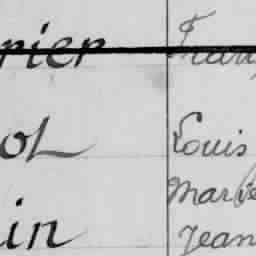 rier Fran
ol Louis
Marie
in Jean